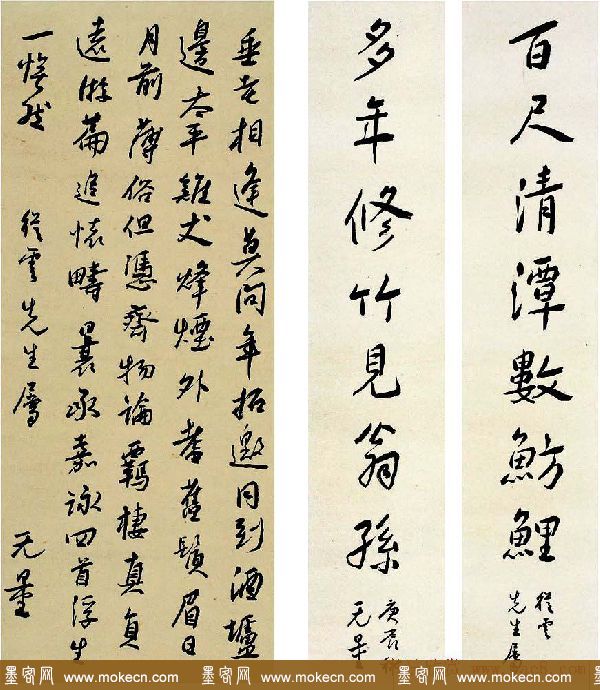 百尺清潭數魴鯉
從雲
先生屬
多年修竹見翁孫
庚辰
无量
垂老相逢莫問年招邀同到酒壚
邊太平雞犬烽煙外耆舊鬚眉日
月前薄俗但憑齊物論羈棲真負
遠游篇追懷疇曩承嘉詠回首浮生
一悵然
從雲先生屬
无量
墨客网 www.mokecn.com 墨客网 www.mokecn.com 墨客网 www.mokecn.com